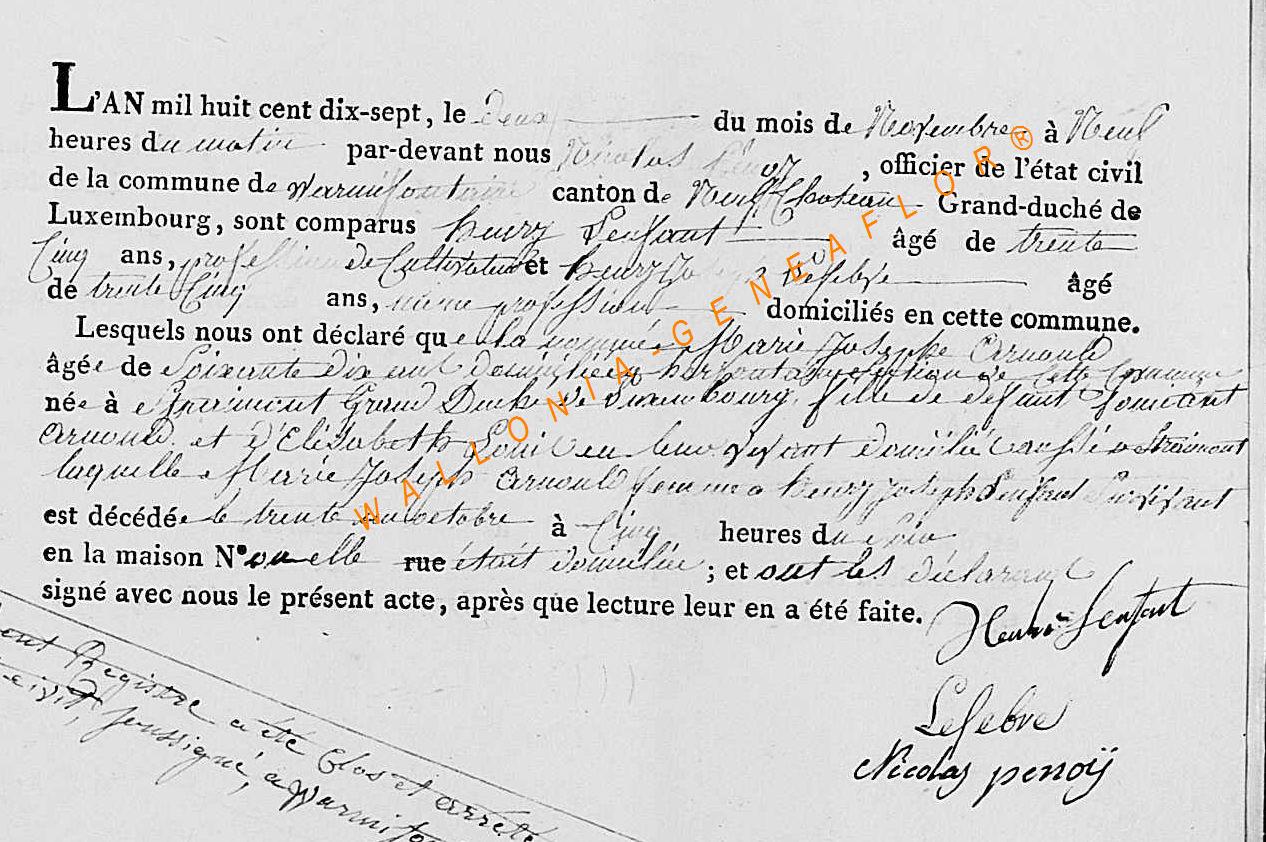 L'AN mil huit cent dix-sept, le deux du mois de Novembre à Neuf
heures du matin par-devant nous Nicolas Penoÿ, officier de l'état civil
de la commune de Warmifontaine canton de Neufchateau Grand-duché de
Luxembourg, sont comparus henry Lenfant âgé de trente
Cinq ans, profession de Cultivateur et henry Joseph Lefebre âgé
de trente Cinq ans, même profession domiciliés en cette commune.
Lesquels nous ont déclaré que la nommée Marie Josephe Arnould
âgée de Soixante dix ans domiciliée section de cette Commune
née à Straimont Grand Duché de Luxembourg, fille de defunt
Arnould et d'Elisabeth en leur vivant domicilié aussi a Straimont
laquelle Marie Joseph Arnould femme a henry Joseph Lenfant Survivant
est décédée le trente un octobre à Cinq heures du soir
en la maison N° ou elle rue était domiciliée ; et ont les déclarants
signé avec nous le présent acte, après que lecture leur en a été faite.
Henri Lenfant
Lefebre
Nicolas penoÿ
Registre a été Clos et arrêté
soussigné, a Warmifo
WALLONIA-GENEAFLOR®